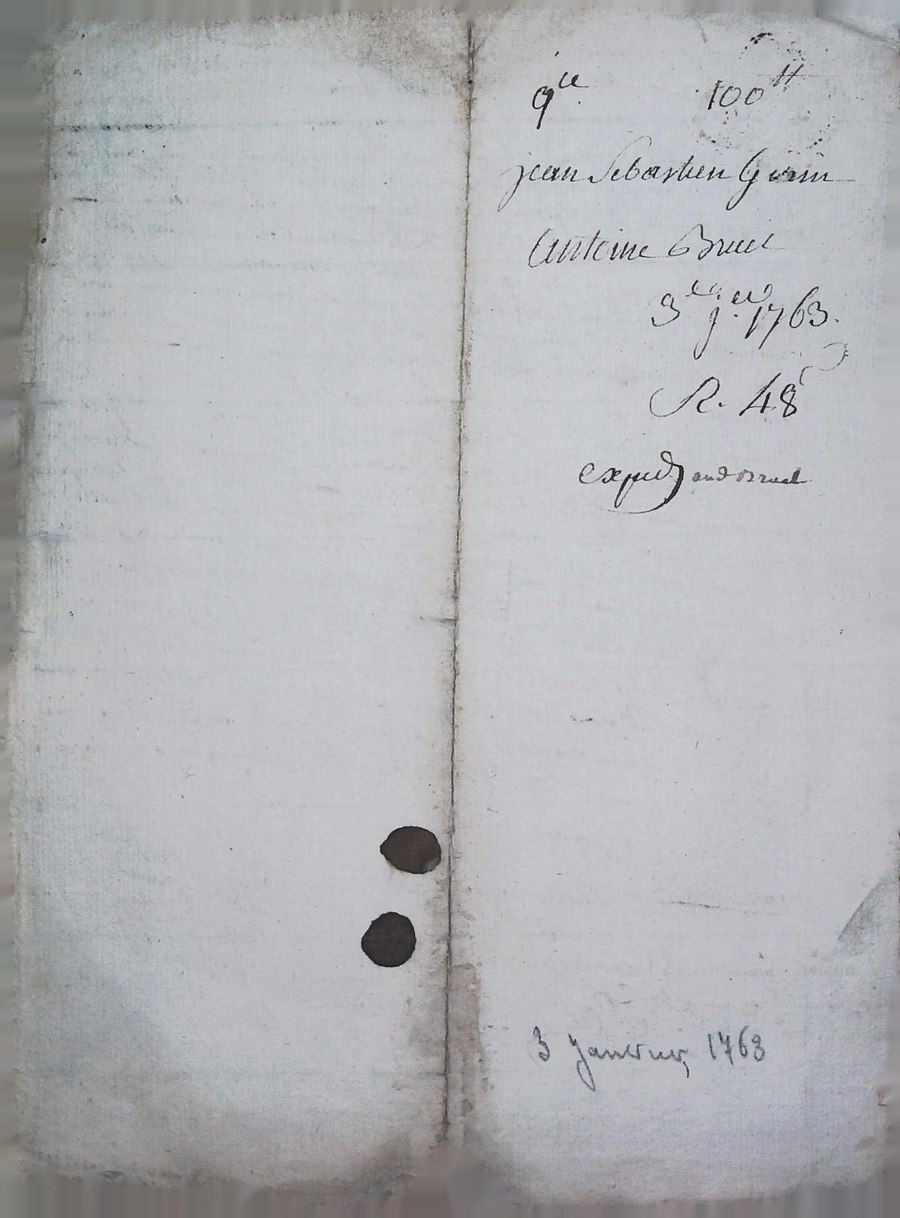 q.ce 100 ₶
jean Sebastien Guerin
Antoine Bruel
3e j.er 1763.
R. 48
exped and Bruel
3 Janvier 1763